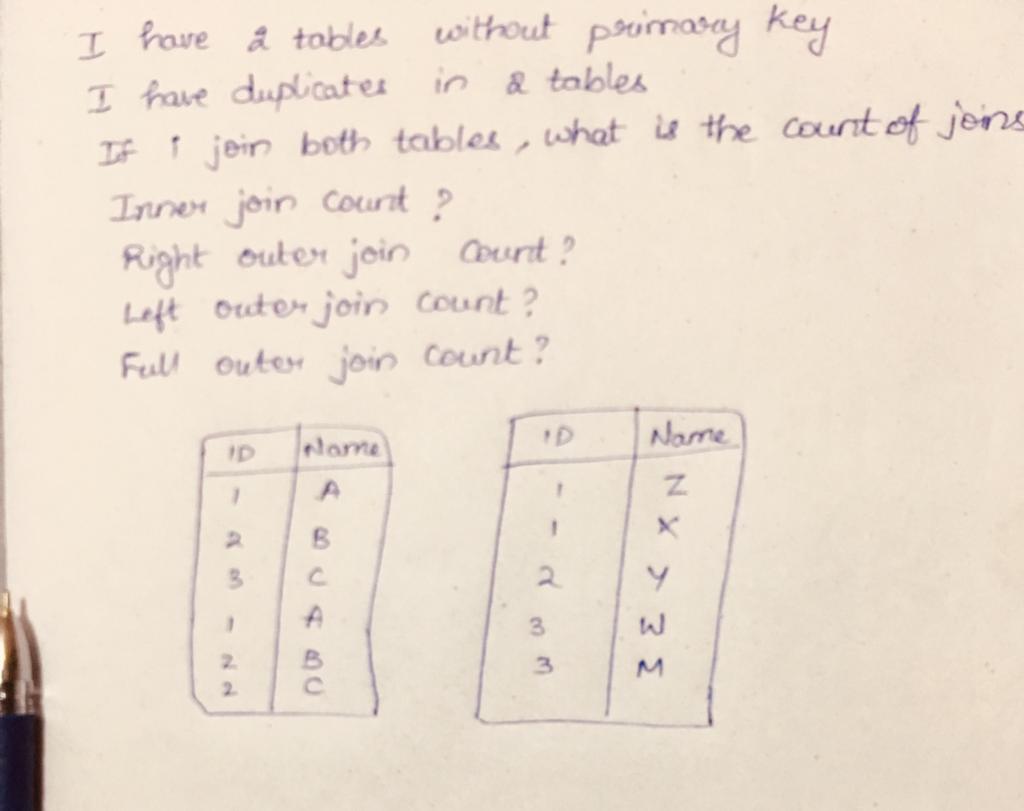 I have 2 tables without primary key
I have duplicates in 2 tables
If i join both tables, what is the count of joins
Inner join count ?
Right outer join count ?
Left outer join count ?
Full outer join count ?
ID Name
1 A
2 B
3 C
1 A
2 B
2 C
ID Name
1 Z
1 X
2 Y
3 W
3 M